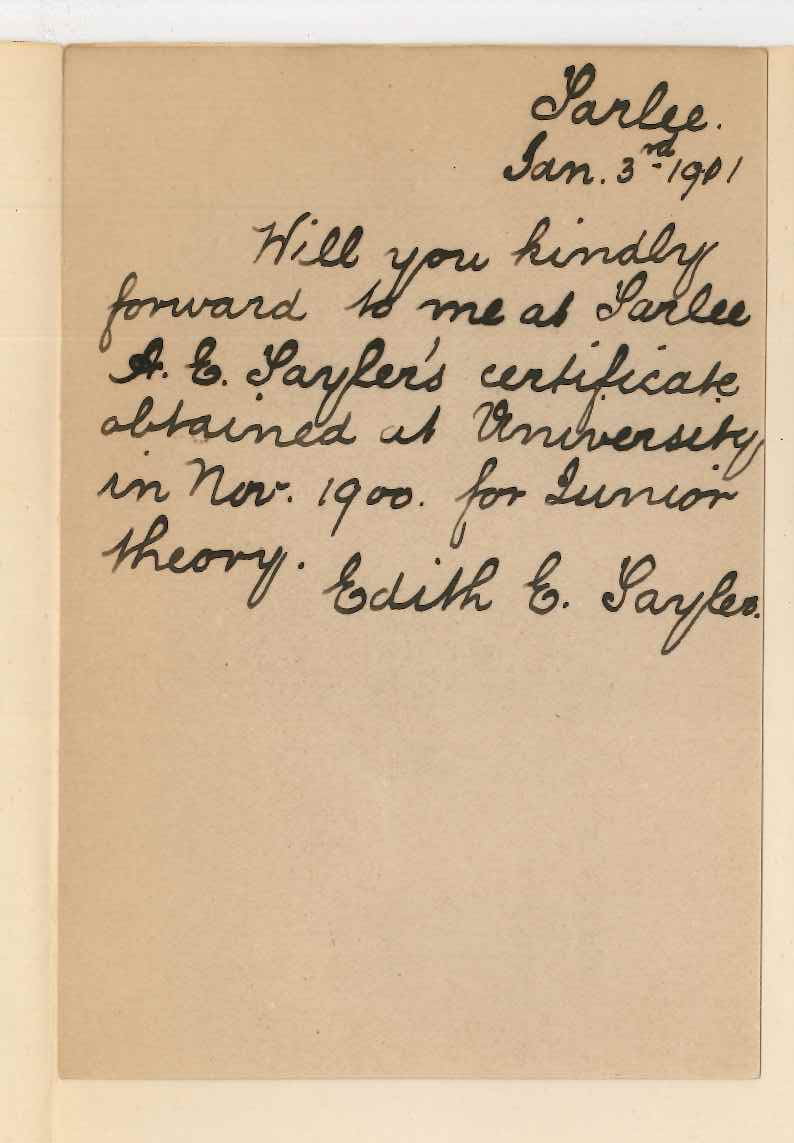 Tarlee.
Jan. 3rd 1901
Will you kindly
forward to me at Tarlee
A. E. Tayler's certificate
obtained at University
in Nov. 1900. for Junior
theory.
Edith E. Tayler.